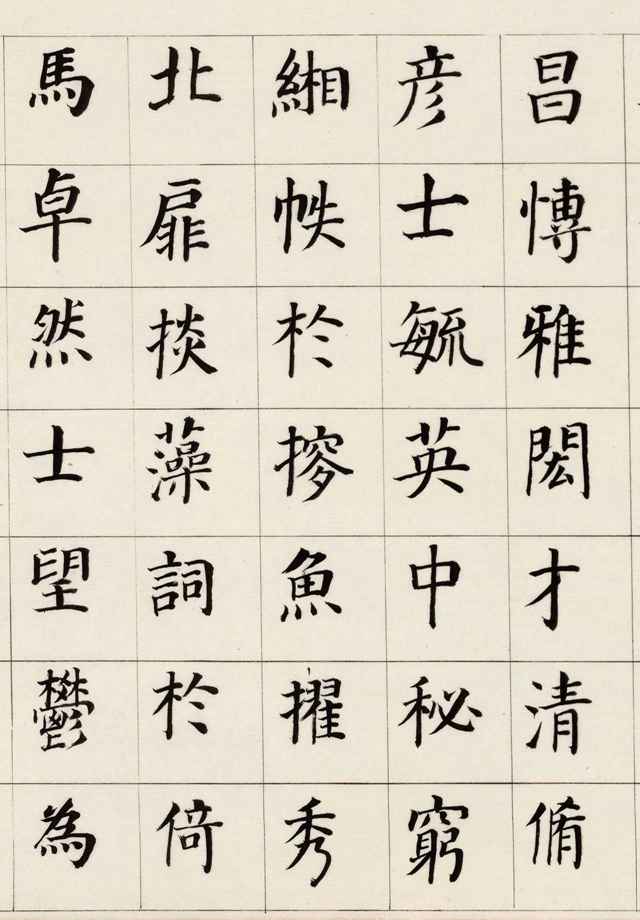 昌愽雅閎才清脩
彦士毓英中秘窮
緗帙於摎魚擢秀
北扉掞藻詞於倚
馬卓然士望鬱為